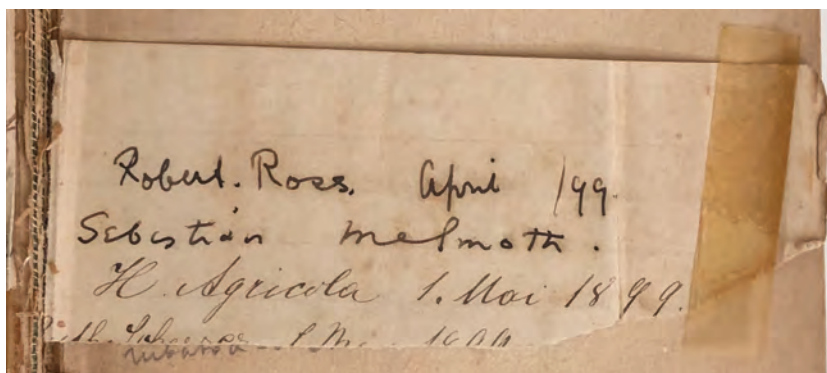 Robert. Ross. April /99.
Sebastian Melmoth.
H. Agricola 1. Mai 1899.
1899